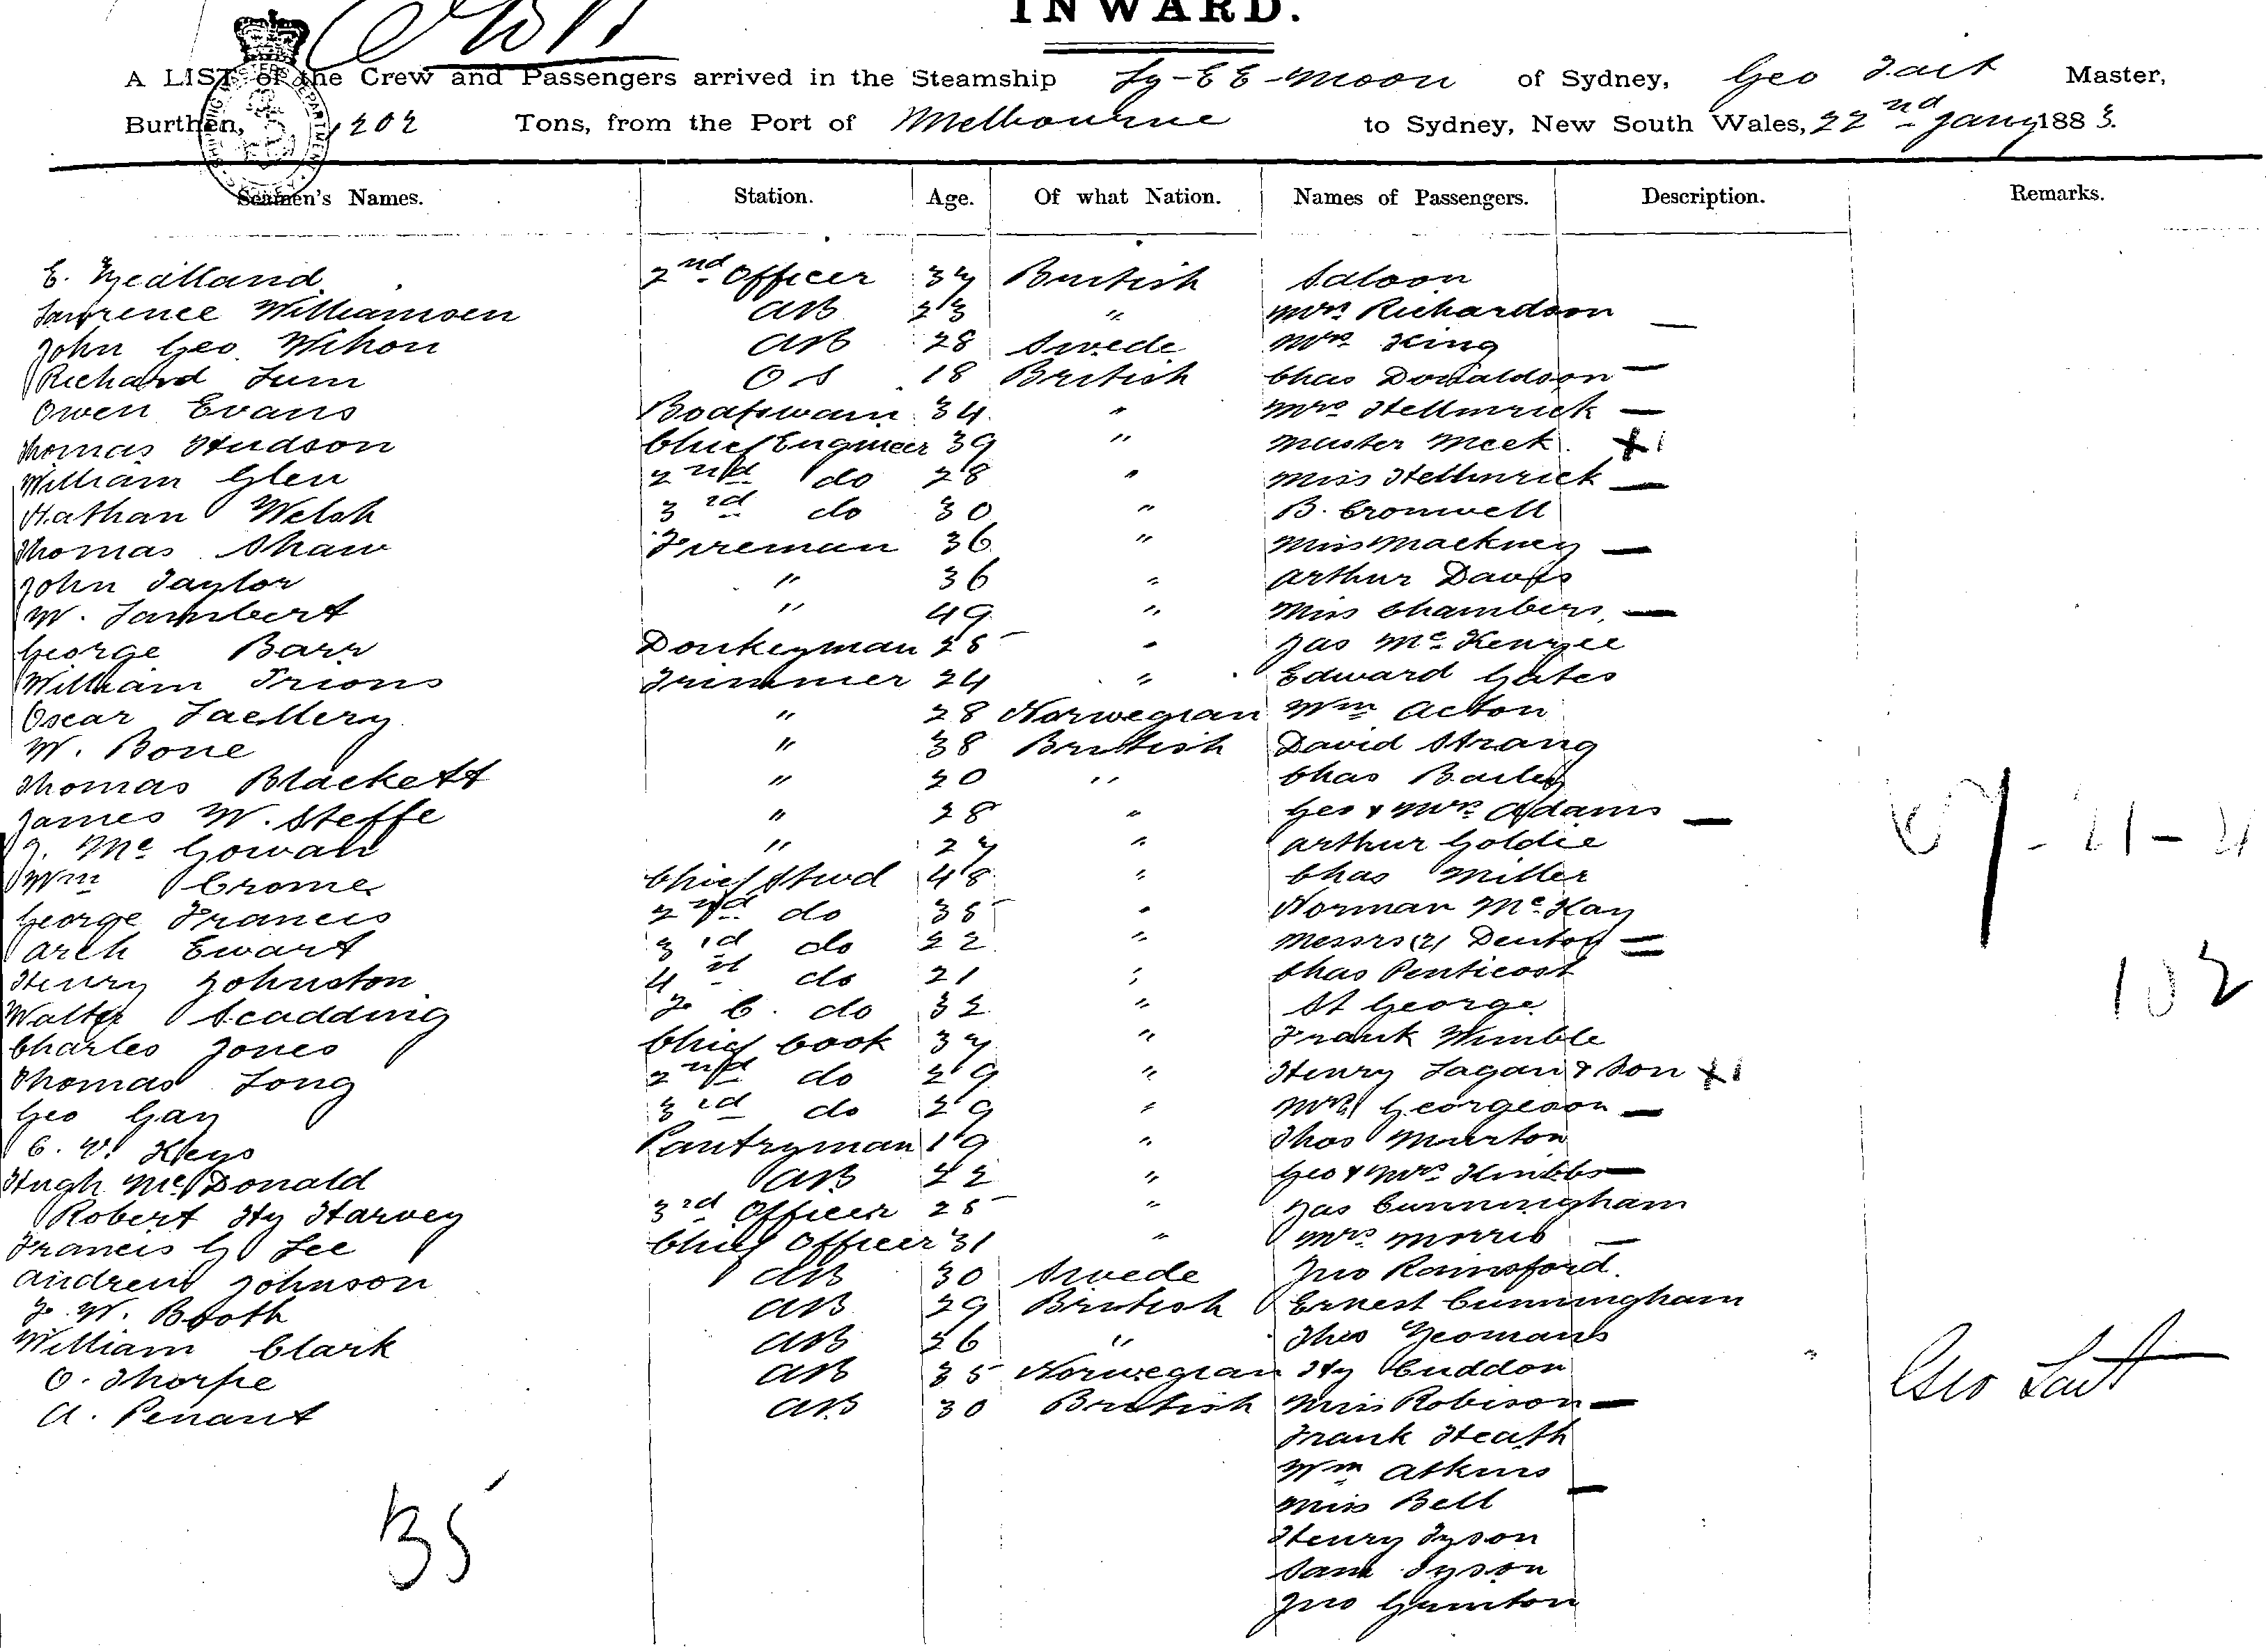 INWARD.
A LIST of the Crew and Passengers arrived in the Steamship Ly-EE-Moon of Sydney, Geo Tait Master,
Burthen, 1202 Tons, from the Port of Melbourne to Sydney, New South Wales, 22nd Jany 1883.
Seamen's Names. Station. Age. Of what Nation. Names of Passengers. Description. Remarks.
E. 2nd Officer 37 British Saloon
Lawrence Williamsen AB 23 " Mrs Richardson —
John Geo Wilson AB 28 Swede Mrs King
Richard Lum OS 18 British Chas Donaldson —
Owen Evans Boatswain 34 " Mrs Hellmrick —
Thomas Hudson Chief Engineer 39 " Master Meek. +1
William Glen 2nd do 28 " Miss Hellmrick —
Nathan Welsh 3rd do 30 " B. Cromwell
Thomas Shaw Fireman 36 " Miss Mackney —
John Taylor " 36 " Arthur Davis
W. Lambert " 49 " Miss Chambers, —
George Barr Donkeyman 25 " Jas McKenzee
William Irions Trimmer 24 " Edward Gates
Oscar " 28 Norwegian Wm Acton
W. Bone " 38 British David Strang
Thomas Blackett " 20 " Chas Bailey
James W. Steffe " 28 " Geo & Mrs Adams —
J. McGowan " 27 " Arthur Goldie
Wm Crome Chief Stwd 48 " Chas Miller
George Francis 2nd do 35 " Norman McKay
Arch Ewart 3rd do 22 " Messrs (2) Denton =
Henry Johnston 4th do 21 " Chas Penticost
Walter Scadding F. C. do 32 " St George
Charles Jones Chief Cook 37 " Frank Wimble
Thomas Long 2nd do 29 " Henry Lagan & Son +1
Geo Gay 3rd do 29 " Mrs Georgeson —
C. W. Keys Pantryman 19 " Thos Murton
Hugh McDonald AB 22 " Geo & Mrs —
Robert Hy Harvey 3rd Officer 25 " Jas Cunningham
Francis G Lee Chief Officer 31 " Mrs Morris —
Andrew Johnson AB 30 Swede Jno Rainsford.
F. W. Booth AB 29 British Ernest Cunningham
William Clark AB 26 " Theo Yeomans
O. Thorpe AB 35 Norwegian Hy Cuddon
A. Penant AB 30 British Miss Robison —
Frank Heath
Wm Atkins
Miss Bell —
Henry Tyson
Sam Tyson
Jno Gunton
35
102
Geo Tait